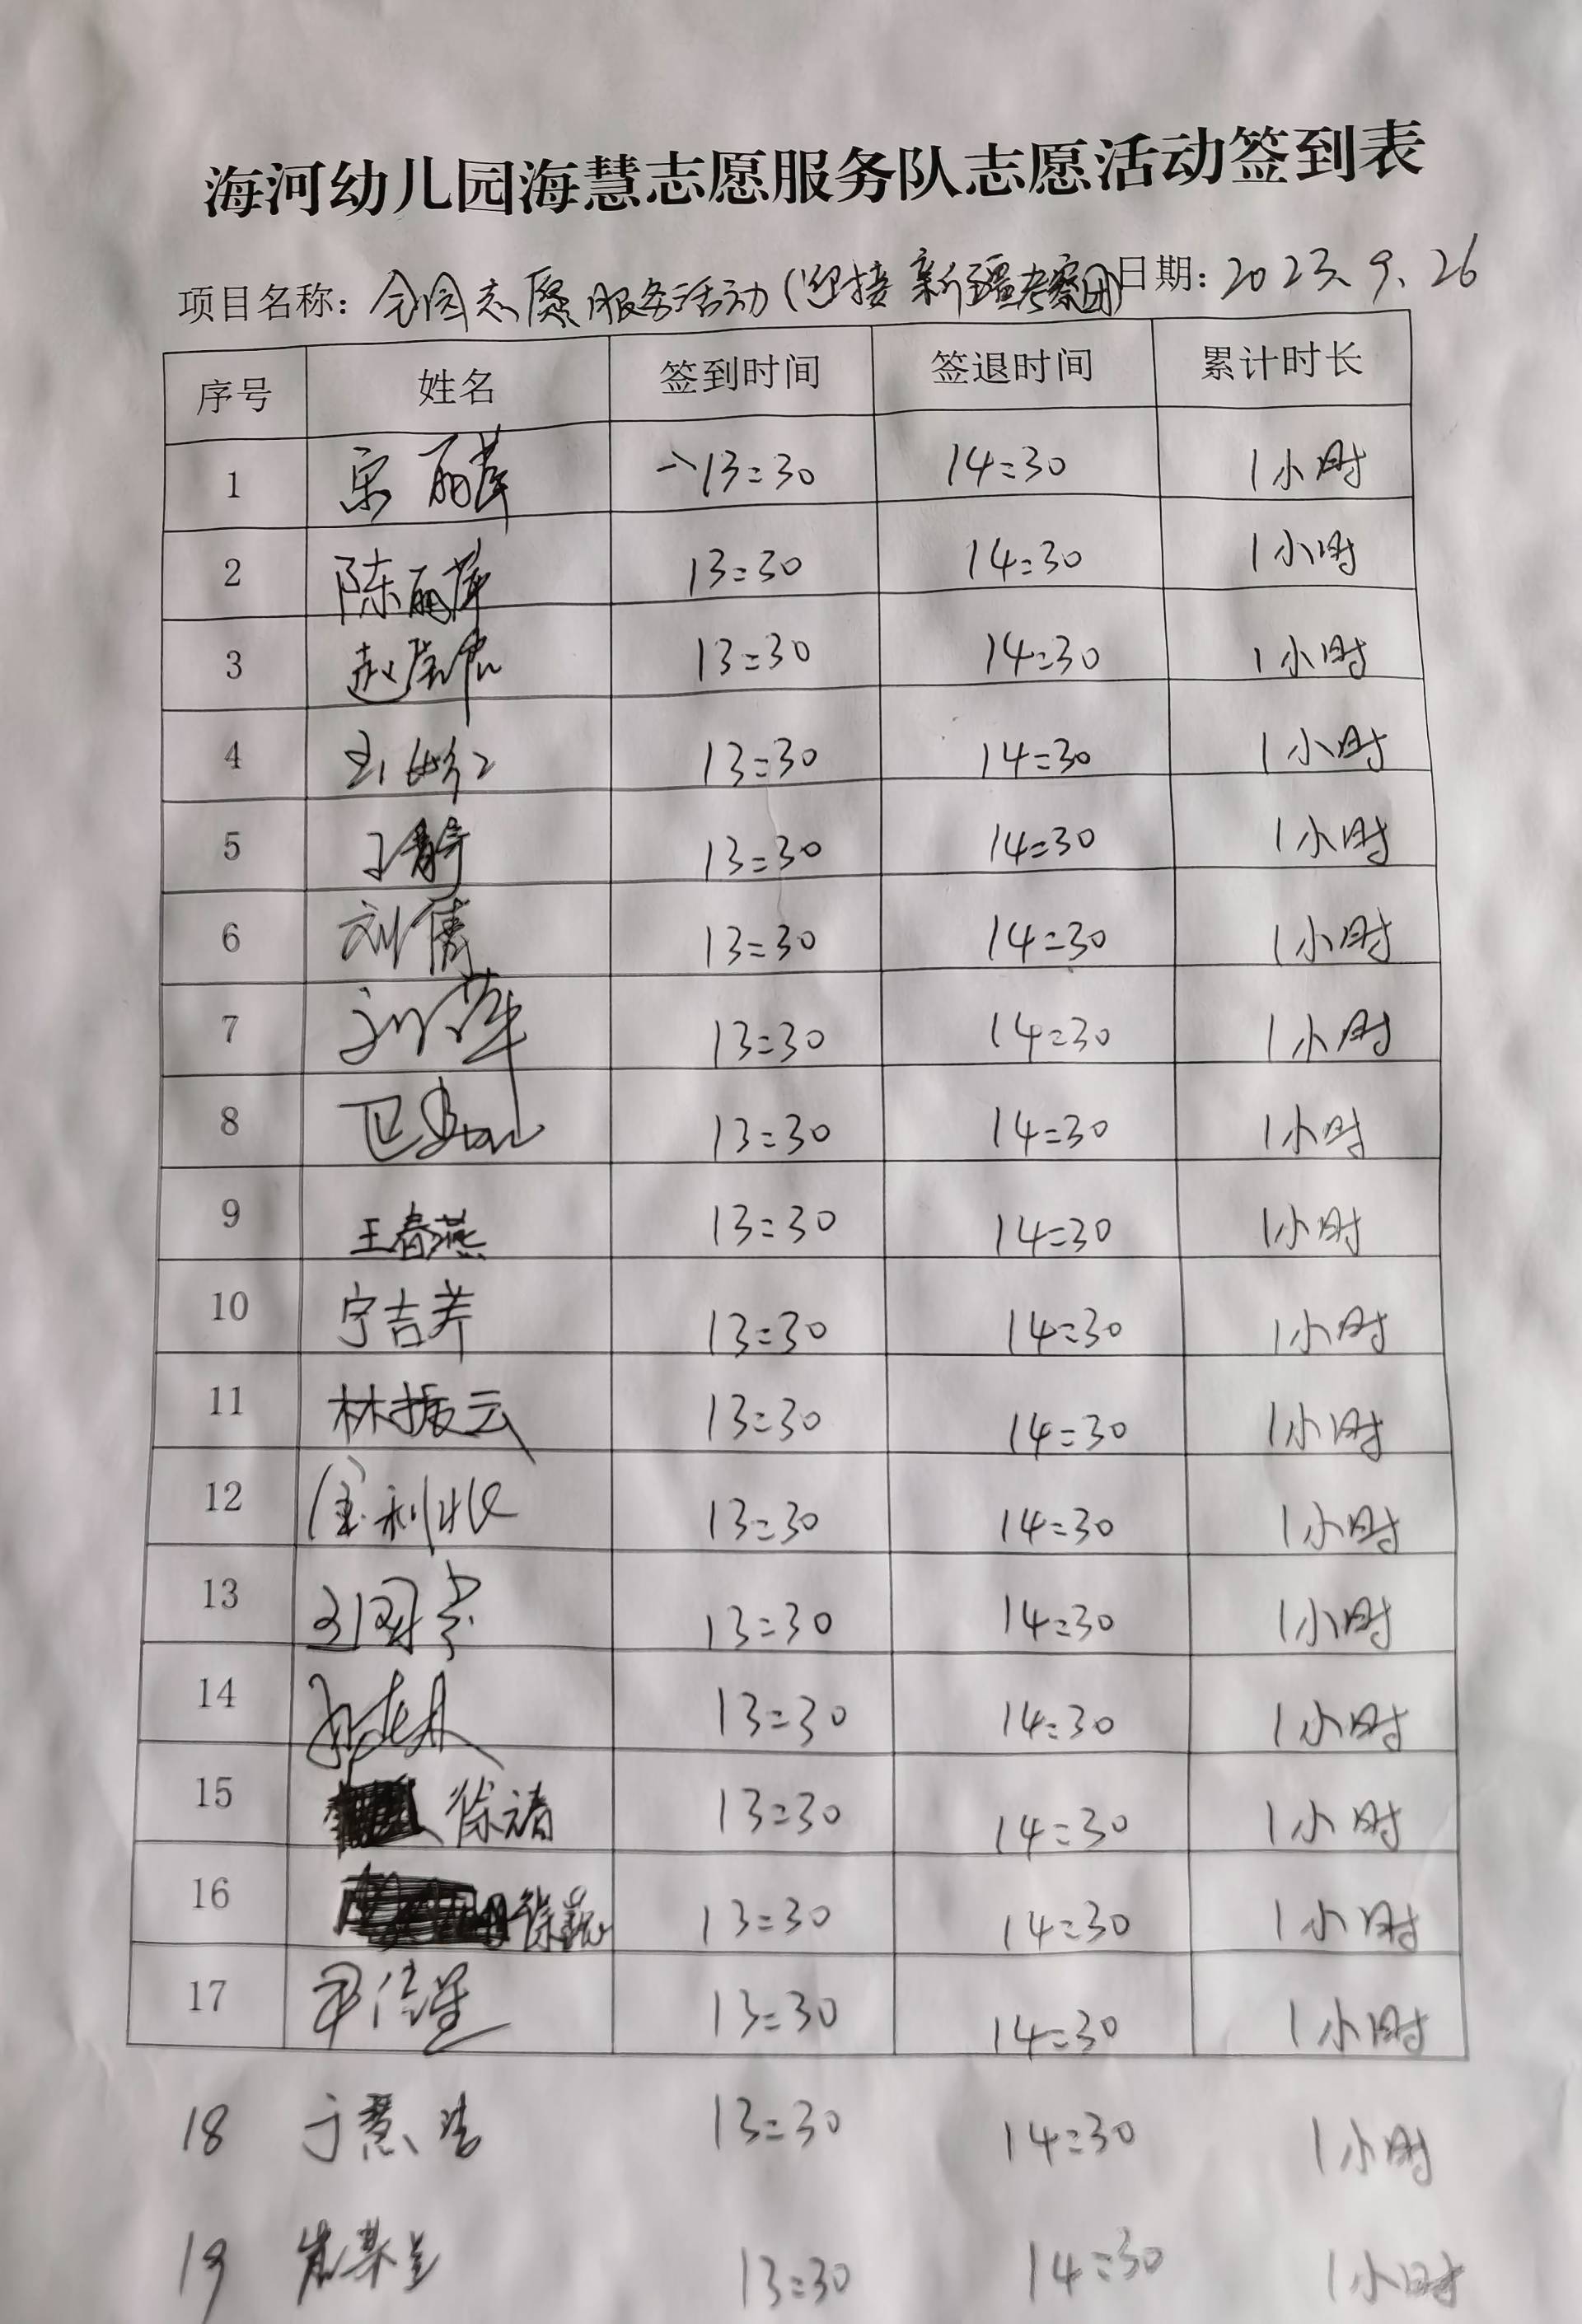 海河幼儿园海慧志愿服务队志愿活动签到表
项目名称：全园志愿服务活动(迎接新疆考察团) 日期：2023、9、26
序号 姓名 签到时间 签退时间 累计时长
1 宋丽萍 13:30 14:30 1小时
2 陈丽萍 13:30 14:30 1小时
3 赵 13:30 14:30 1小时
4 13:30 14:30 1小时
5 王静 13:30 14:30 1小时
6 刘倩 13:30 14:30 1小时
7 刘萍 13:30 14:30 1小时
8 13:30 14:30 1小时
9 王春燕 13:30 14:30 1小时
10 宁吉荞 13:30 14:30 1小时
11 林振云 13:30 14:30 1小时
12 13:30 14:30 1小时
13 13:30 14:30 1小时
14 13:30 14:30 1小时
15 徐 13:30 14:30 1小时
16 徐 13:30 14:30 1小时
17 13:30 14:30 1小时
18 于慧洁 13:30 14:30 1小时
19 13:30 14:30 1小时